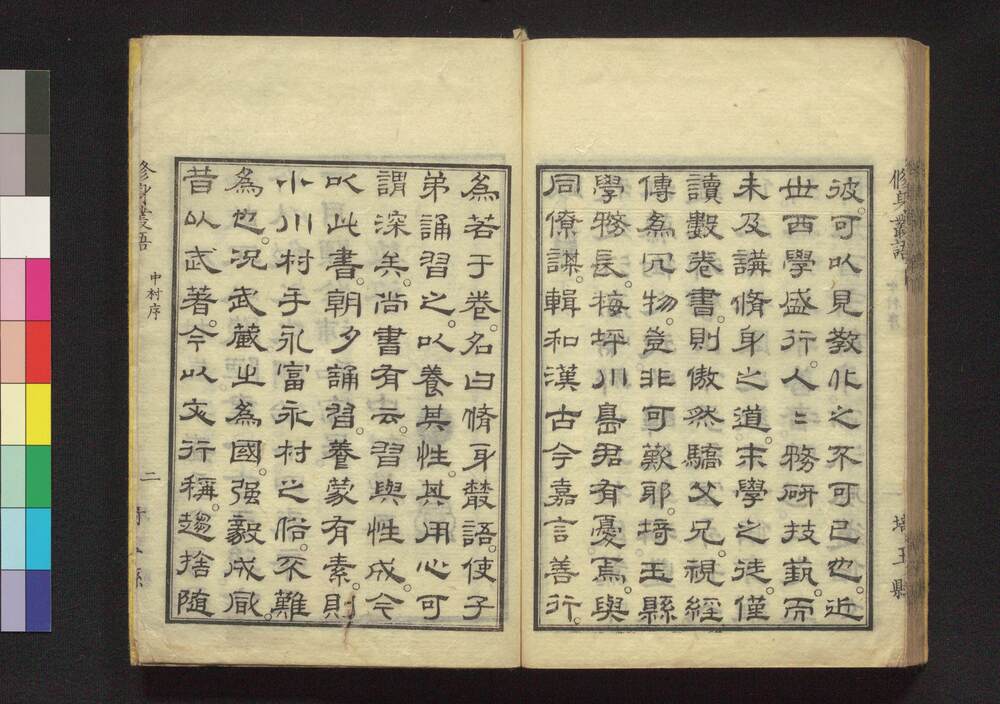 修身叢語
埼玉縣
彼。可以見敎化之不可已也。近
世西學盛行。人〻務硏技藝。而
未及講脩身之道。末學之徒。僅
讀數卷書。則傲然驕父兄。視經
傳爲冗物。豈非可歎耶。埼玉縣
學務長。梅坪川島君有憂焉。與
同僚謀。輯和漢古今嘉言善行。
爲若于卷。名曰脩身叢語。使子
弟誦習之。以養其性。其用心可
謂深矣。尚書有云。習與性成。今
以此書。朝夕誦習。養蒙有素。則
小川村于永富永村之俗。不難
爲也。况武藏之爲國。强毅成風。
昔以武著。今以文行稱。趨捨隨
修身叢語
中村序
二